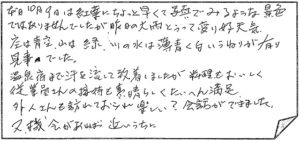 10月9日は紅葉にちょっと早くて写真でみるような景色
ではありませんでしたが昨日の大雨とうって変り好天気
空は青空、山は緑、川の水は薄青く白いうねりが有り
見事でした。
温泉宿まで汗を流して到着しましたが料理もおいしく
従業員さんの接待も素晴らしくたいへん満足
外人さんも訪れており楽しい会話ができました。
又機会があれば近いうちに